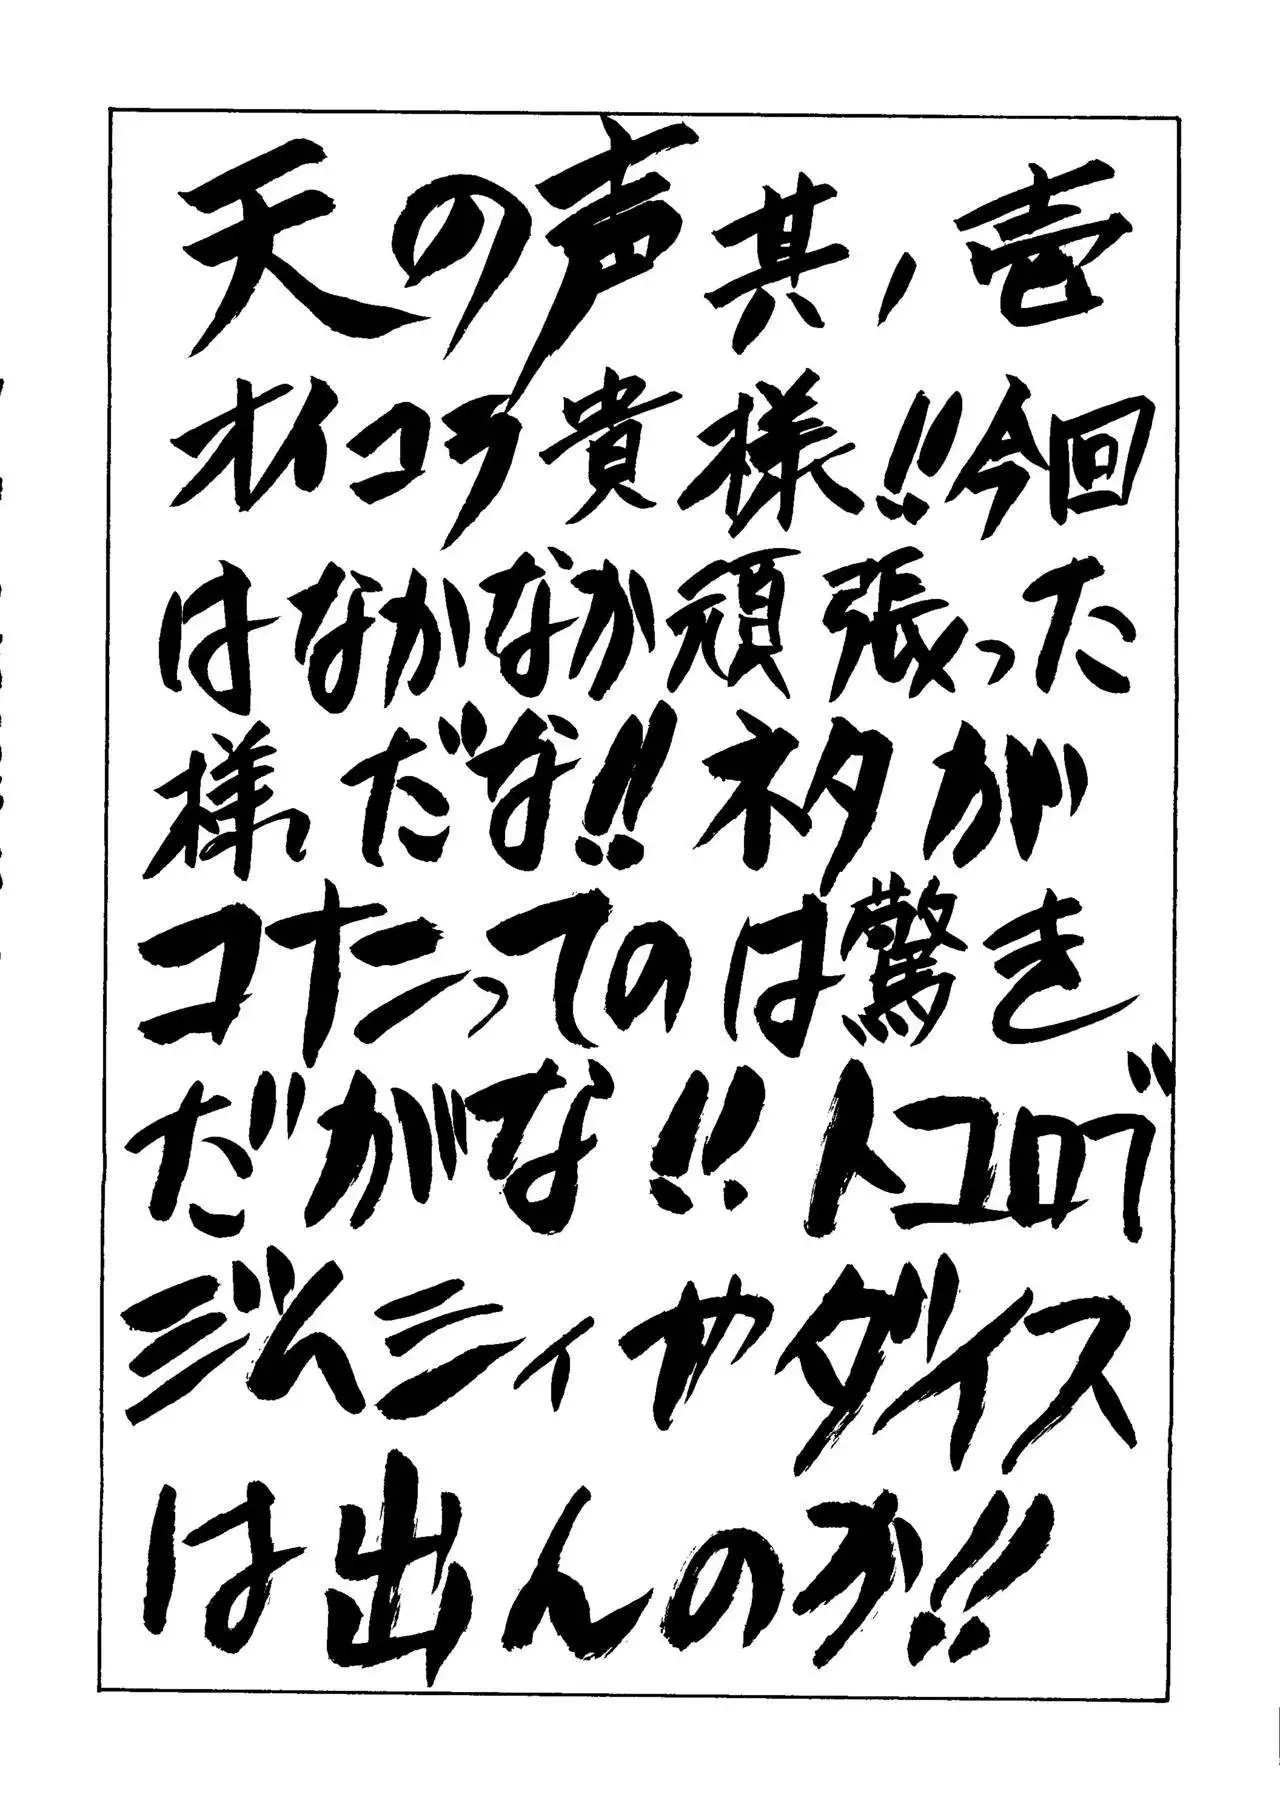 天の声其ノ壱
オイコラ貴様!!今回
はなかなか頑張った
様だな!!ネタが
コナミってのは驚き
だがな!!トコロで
ジムニィやダイス
は出んのか!!